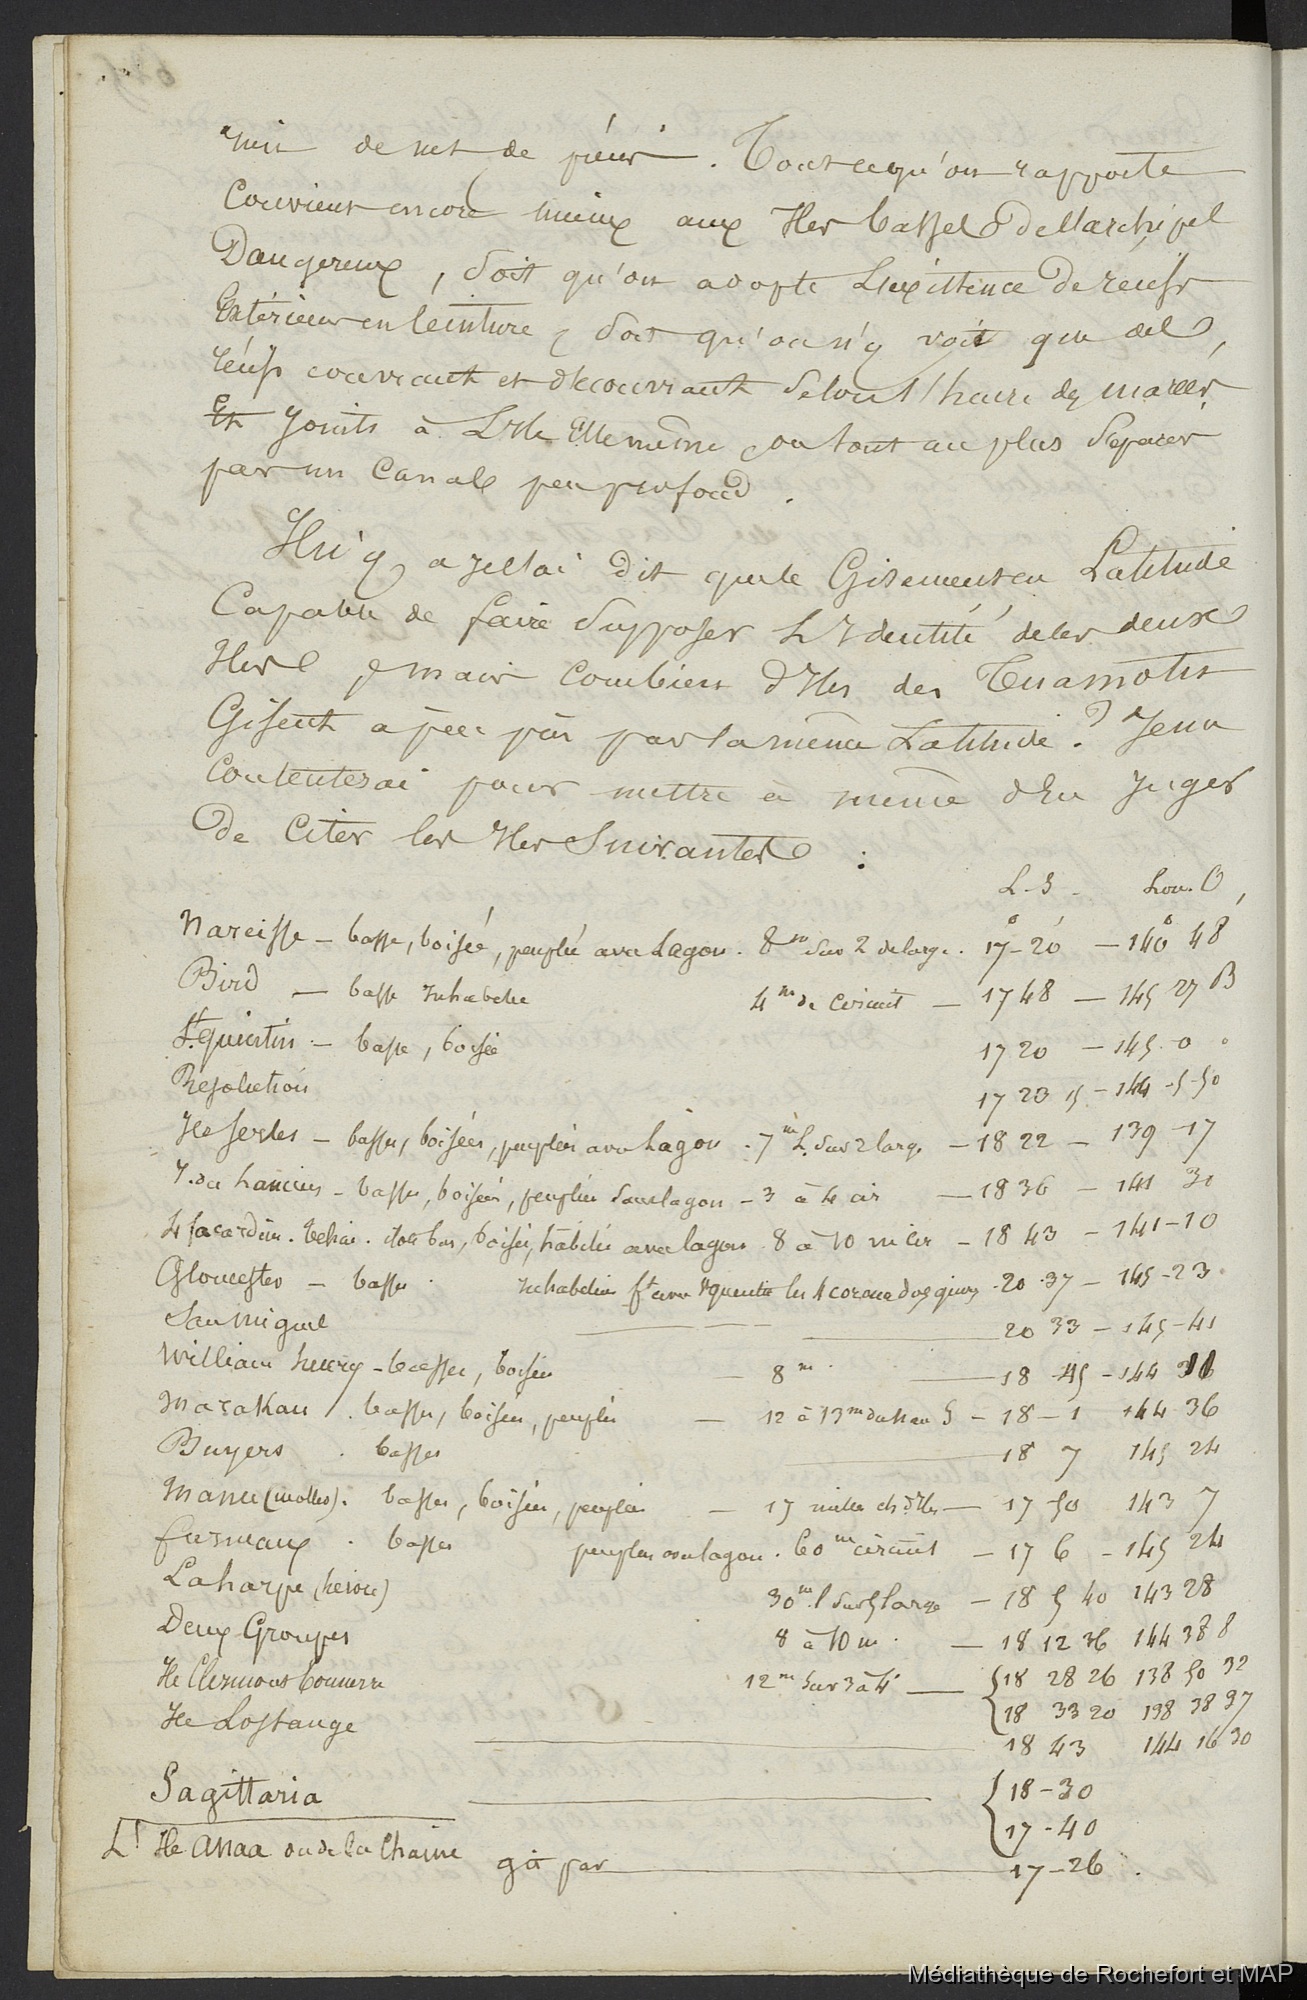 de de . Tout cequ'on rapporte
Convient encore mieux aux Iles basses de l'archipel
Dangereux, soit qu'on adopte L'existence de récifs
Extérieurs en Ceinture, soit qu'on n'y voit que des
récifs couvrant et découvrant selon l'heure des marées
Et Joints à L'Ile Elle même, ou tout au plus séparés
par un Canal peu profond.
Il n'y a je l'ai dit que le Gisement en Latitude
Capable de faire Supposer L'Identité de les deux
Iles, mais combien d'Iles des Tuamotus
Gisent a peu près par la même Latitude? Je me
Contenterai pour mettre à même d'En Juger
De Citer les Iles Suivantes :
L. S. Lon. O,
Narcisse – basse, boisée, peuplée avec Lagon. 8 m sur 2 de large. 17° – 20' – 140° 48'
Bird – basse Inhabitée 4 m de Circuit – 17 48 – 145 27 B
St. quintin – basse, boisée 17 20 – 145 . 0
Resolution 17 23 5 – 144 – 5 – 50
Ile Serles – basses, boisées, peuplées avec Lagon . 7 m L. sur 2 large – 18 22 – 139 – 17
I. des Lanciers – basses, boisées, peuplées sans lagon – 3 à 4 cir – 18 36 – 141 31
4 facardins . bas, boisées, habitées avec lagon 8 à 10 m Cir – 18 43 – 141 – 10
Gloucester – basse . Inhabitées St quentin les 4 corona de quiros . 20 . 37 – 145 – 23 .
San miguel 20 33 – 145 – 41
William henry – basses, boisées – 8 m . 18 . 45 – 144
Marakau . basses, boisées, peuplées – 12 à 13 m du N au S – 18 – 1 144 36
Buyers . basses 18 7 145 24
Manu (molles). basses, boisées, peuplées – 15 milles – 17 – 50 143 7
furneaux . basses peuplées avec lagon . 60 m circuit – 17 6 – 145 24
Laharpe (héiou) 30 m. l sur 5 large – 18 5 40 143 28
Deux Groupes 8 à 10 m . – 18 12 36 144 38 8
Ile Clermont tonnerre 12 m sur 3 à 4 – 18 28 26 138 50 32
18 33 20 138 38 37
Ile Lostange 18 43 144 16 30
Sagittaria 18 – 30
17 – 40
L' Ile Anaa ou de la Chaine git par 17 – 26 .
Médiathèque de Rochefort et MAP